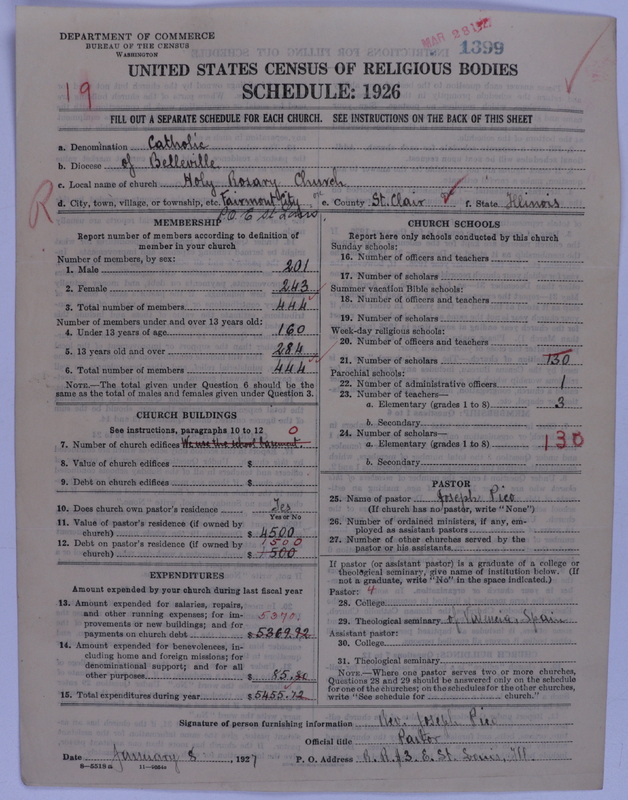 DEPARTMENT OF COMMERCE
BUREAU OF THE CENSUS
WASHINGTON
MAR 28
1399
UNITED STATES CENSUS OF RELIGIOUS BODIES
19
SCHEDULE: 1926
FILL OUT A SEPARATE SCHEDULE FOR EACH CHURCH. SEE INSTRUCTIONS ON THE BACK OF THIS SHEET
a. Denomination Catholic
b. Diocese of Belleville
c. Local name of church Holy Rosary Church
R
d. City, town, village, or township, etc. Fairmont City e. County St. Clair f. State Illinois
P.O. E St Louis
MEMBERSHIP
Report number of members according to definition of
member in your church
Number of members, by sex:
1. Male 201
2. Female 243
3. Total number of members 444
Number of members under and over 13 years old:
4. Under 13 years of age 160
5. 13 years old and over 284
6. Total number of members 444
NOTE.—The total given under Question 6 should be the
same as the total of males and females given under Question 3.
CHURCH BUILDINGS
See instructions, paragraphs 10 to 12 0
7. Number of church edifices We use the school basement.
8. Value of church edifices $
9. Debt on church edifices $
10. Does church own pastor's residence Yes
Yes or No
11. Value of pastor's residence (if owned by
church) $ 4500
12. Debt on pastor's residence (if owned by 1500
church) $ 1500
EXPENDITURES
Amount expended by your church during last fiscal year
13. Amount expended for salaries, repairs,
and other running expenses; for im- 5370
provements or new buildings; and for
payments on church debt $ 5369.92
14. Amount expended for benevolences, in-
cluding home and foreign missions; for
denominational support; and for all
other purposes $ 85.80
15. Total expenditures during year $ 5455.72
CHURCH SCHOOLS
Report here only schools conducted by this church
Sunday schools:
16. Number of officers and teachers
17. Number of scholars
Summer vacation Bible schools:
18. Number of officers and teachers
19. Number of scholars
Week-day religious schools:
20. Number of officers and teachers
21. Number of scholars 130
Parochial schools:
22. Number of administrative officers 1
23. Number of teachers—
a. Elementary (grades 1 to 8) 3
b. Secondary
24. Number of scholars—
a. Elementary (grades 1 to 8) 130
b. Secondary
PASTOR
25. Name of pastor Joseph Pico
(If church has no pastor, write "None")
26. Number of ordained ministers, if any, em-
ployed as assistant pastors
27. Number of other churches served by the
pastor or his assistants
If pastor (or assistant pastor) is a graduate of a college or
theological seminary, give name of institution below. (If
not a graduate, write "No" in the space indicated.)
Pastor: 4
28. College
29. Theological seminary of Valencia, Spain
Assistant pastor:
30. College
31. Theological seminary
NOTE.—Where one pastor serves two or more churches,
Questions 28 and 29 should be answered only on the schedule
for one of the churches; on the schedules for the other churches,
write "See schedule for church."
Signature of person furnishing information Rev. Joseph Pico
Official title Pastor
Date January 8, 1927 P. O. Address R.R.#3. E. St. Louis, Ill.
8—5518a 11—9664a